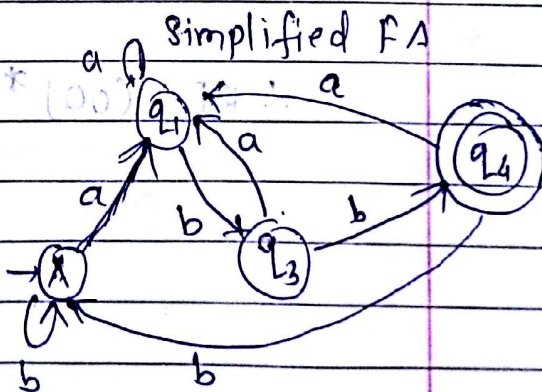 Simplified FA
a
a
q1
a
q4
a
b
b
q3
X
b
b